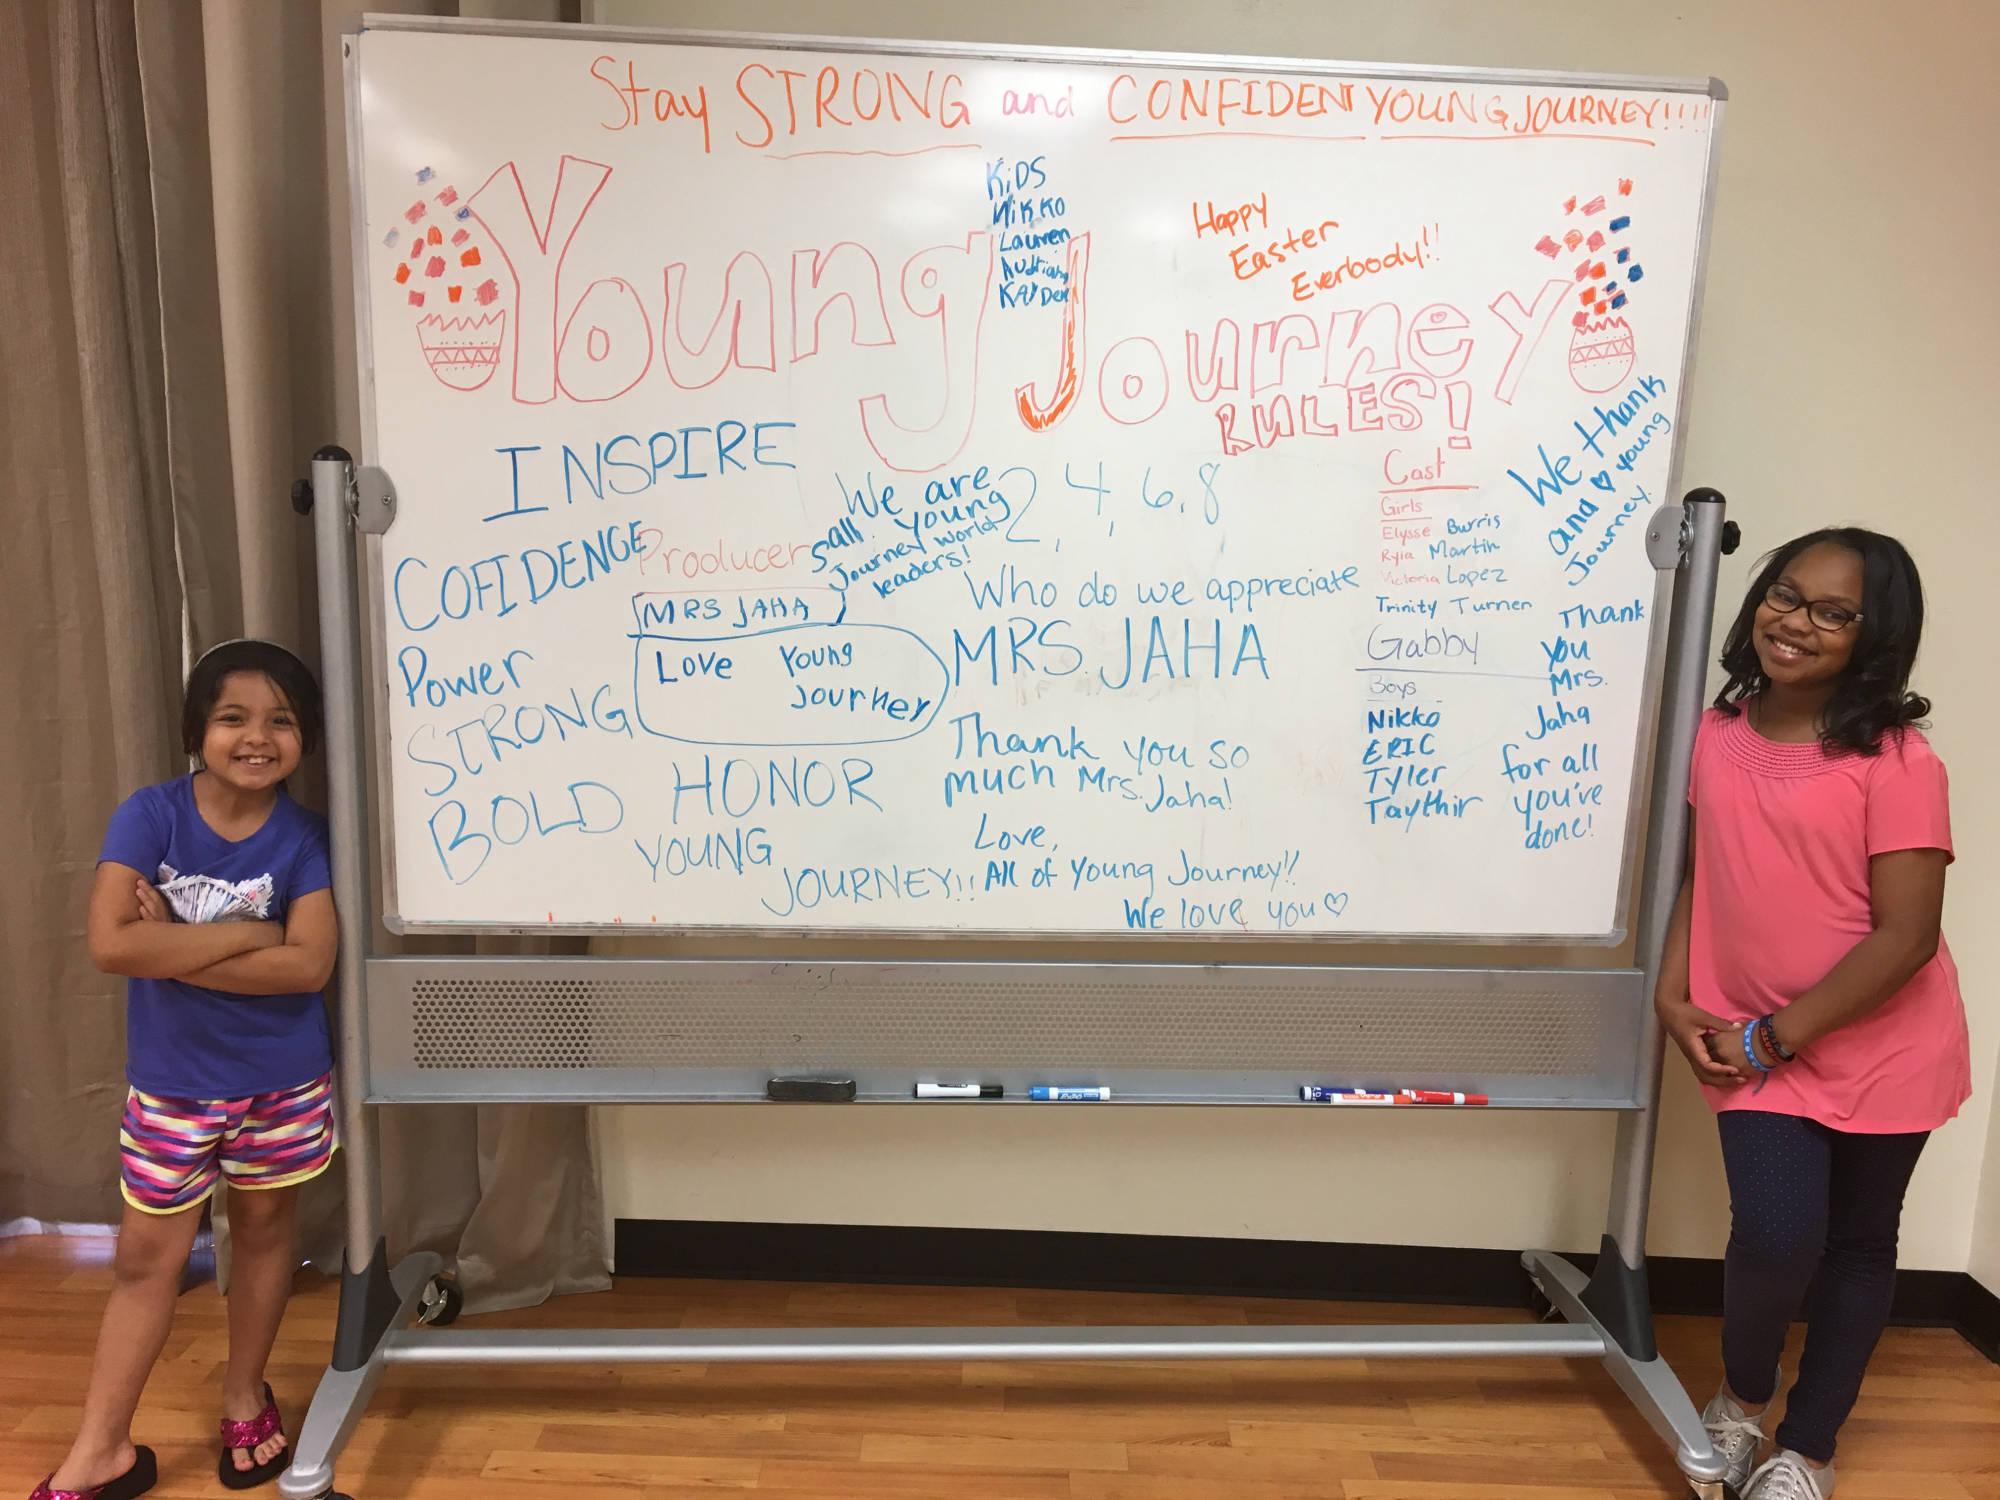 Stay STRONG and CONFIDENT YOUNG JOURNEY!!!!
Young Journey
RULES!
KiDS
NiKKO
Lauren
KAYDen
Happy
Easter
Everbody!!
INSPIRE
COFIDENCE
Power
STRONG
BOLD
Producers
MRS JAHA
Love Young
Journey
HONOR
YOUNG
JOURNEY!!
We are
all Young
Journey world
leaders!
2, 4, 6, 8
Who do we appreciate
MRS. JAHA
Thank you so
much Mrs. Jaha!
Love,
All of Young Journey!!
We love you ♡
Cast
Girls
Elysse Burris
Ryia Martin
Victoria Lopez
Trinity Turner
Gabby
Boys
Nikko
ERIC
Tyler
Taythir
We thank
and ♡ young
Journey.
Thank
you
Mrs.
Jaha
for all
you've
done!
EXPO